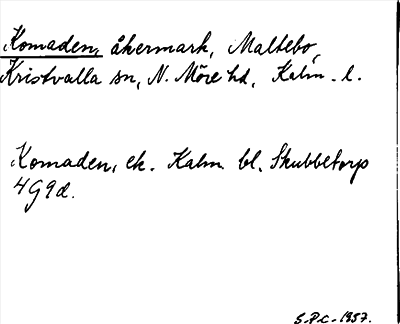 Komaden, åkermark, Maltebo,
Kristvalla sn, N. Möre hd, Kalm. l.
Komaden, ek. Kalm. bl. Skubbetorp
4G9d.
S.P.C. 1957.